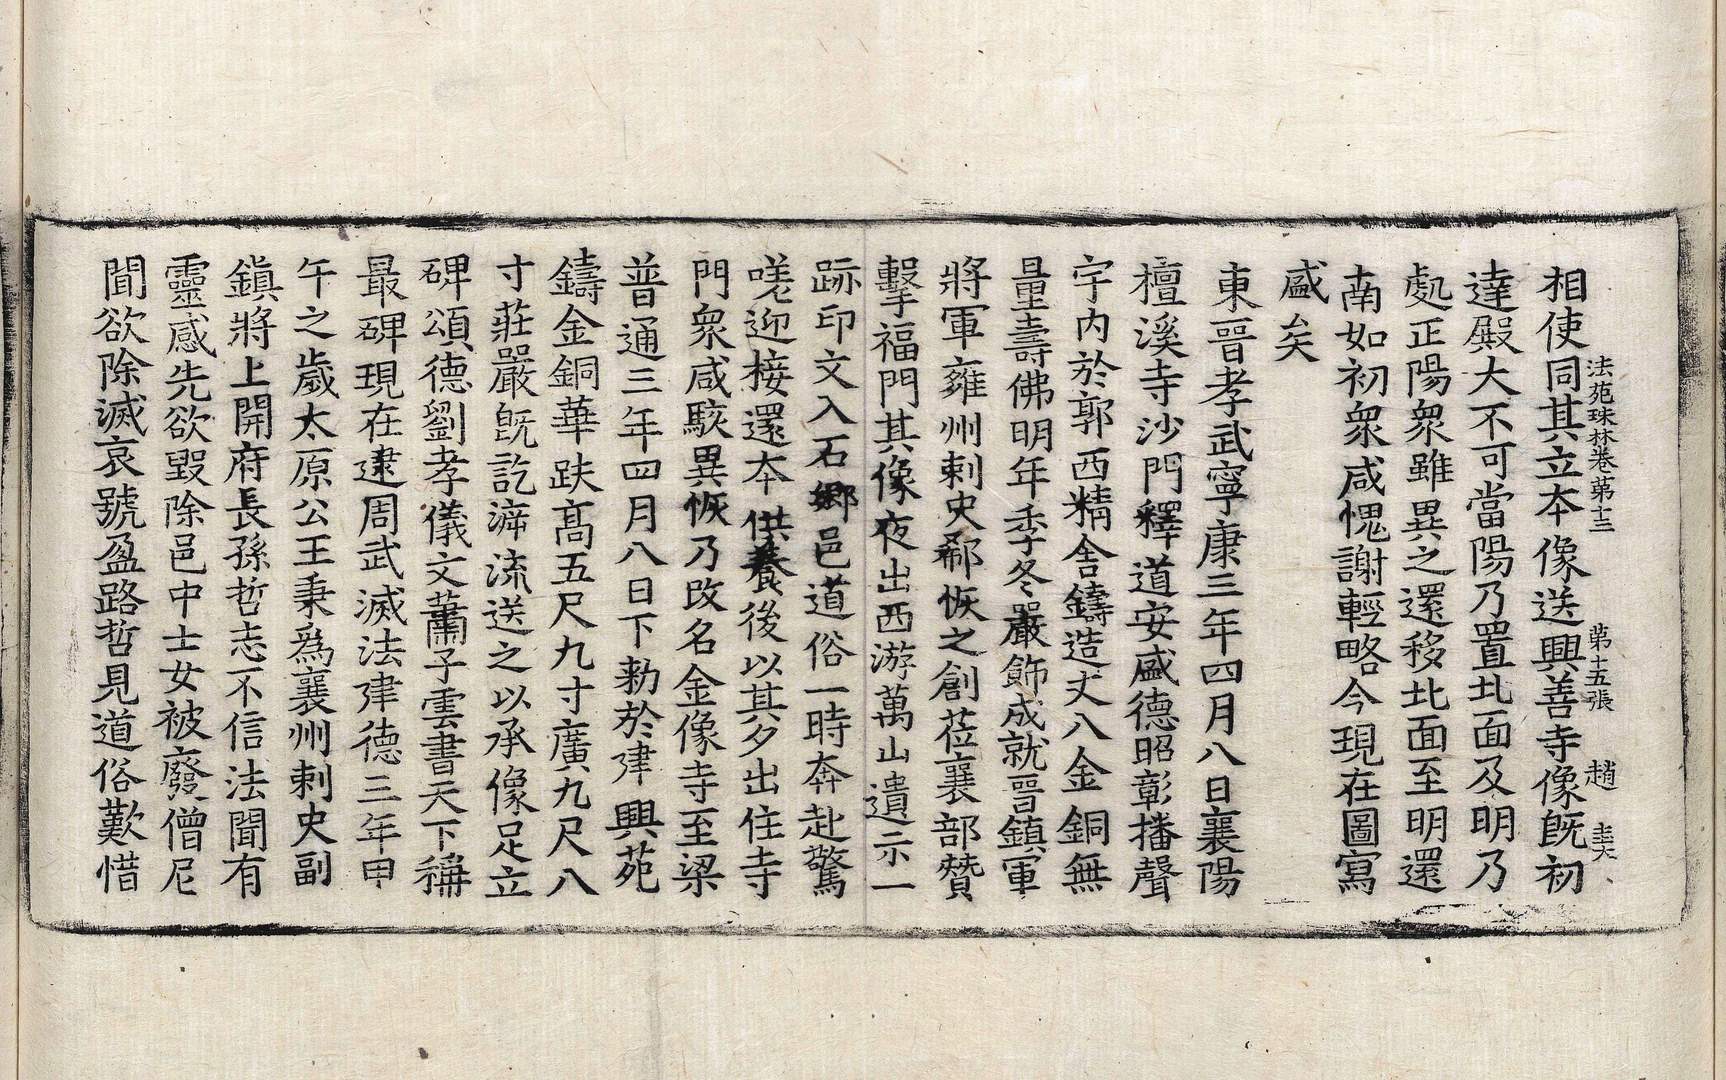 法苑珠林卷第十三　第十五張　趙
相使同其立本像送興善寺像旣初
達殿大不可當陽乃置北面及明乃
處正陽衆雖異之還移北面至明還
南如初衆咸愧謝輕略今現在圖寫
盛矣
東晉孝武寧康三年四月八日襄陽
檀溪寺沙門釋道安盛德昭彰播聲
宇內於郭西精舍鑄造丈八金銅無
量壽佛明年季冬嚴飾成就晉鎮軍
將軍雍州刺史郗恢之創莅襄部贊
擊福門其像夜出西游萬山遺示一
跡印文入石鄉邑道俗一時奔赴驚
嗟迎接還本供養後以其夕出住寺
門衆咸駭異恢乃改名金像寺至梁
普通三年四月八日下勑於建興苑
鑄金銅華趺高五尺九寸廣九尺八
寸莊嚴旣訖泝流送之以承像足立
碑頌德劉孝儀文蕭子雲書天下稱
最碑現在逮周武滅法建德三年甲
午之歲太原公王秉爲襄州刺史副
鎮將上開府長孫哲志不信法聞有
靈感先欲毀除邑中士女被廢僧尼
聞欲除滅哀號盈路哲見道俗歎惜